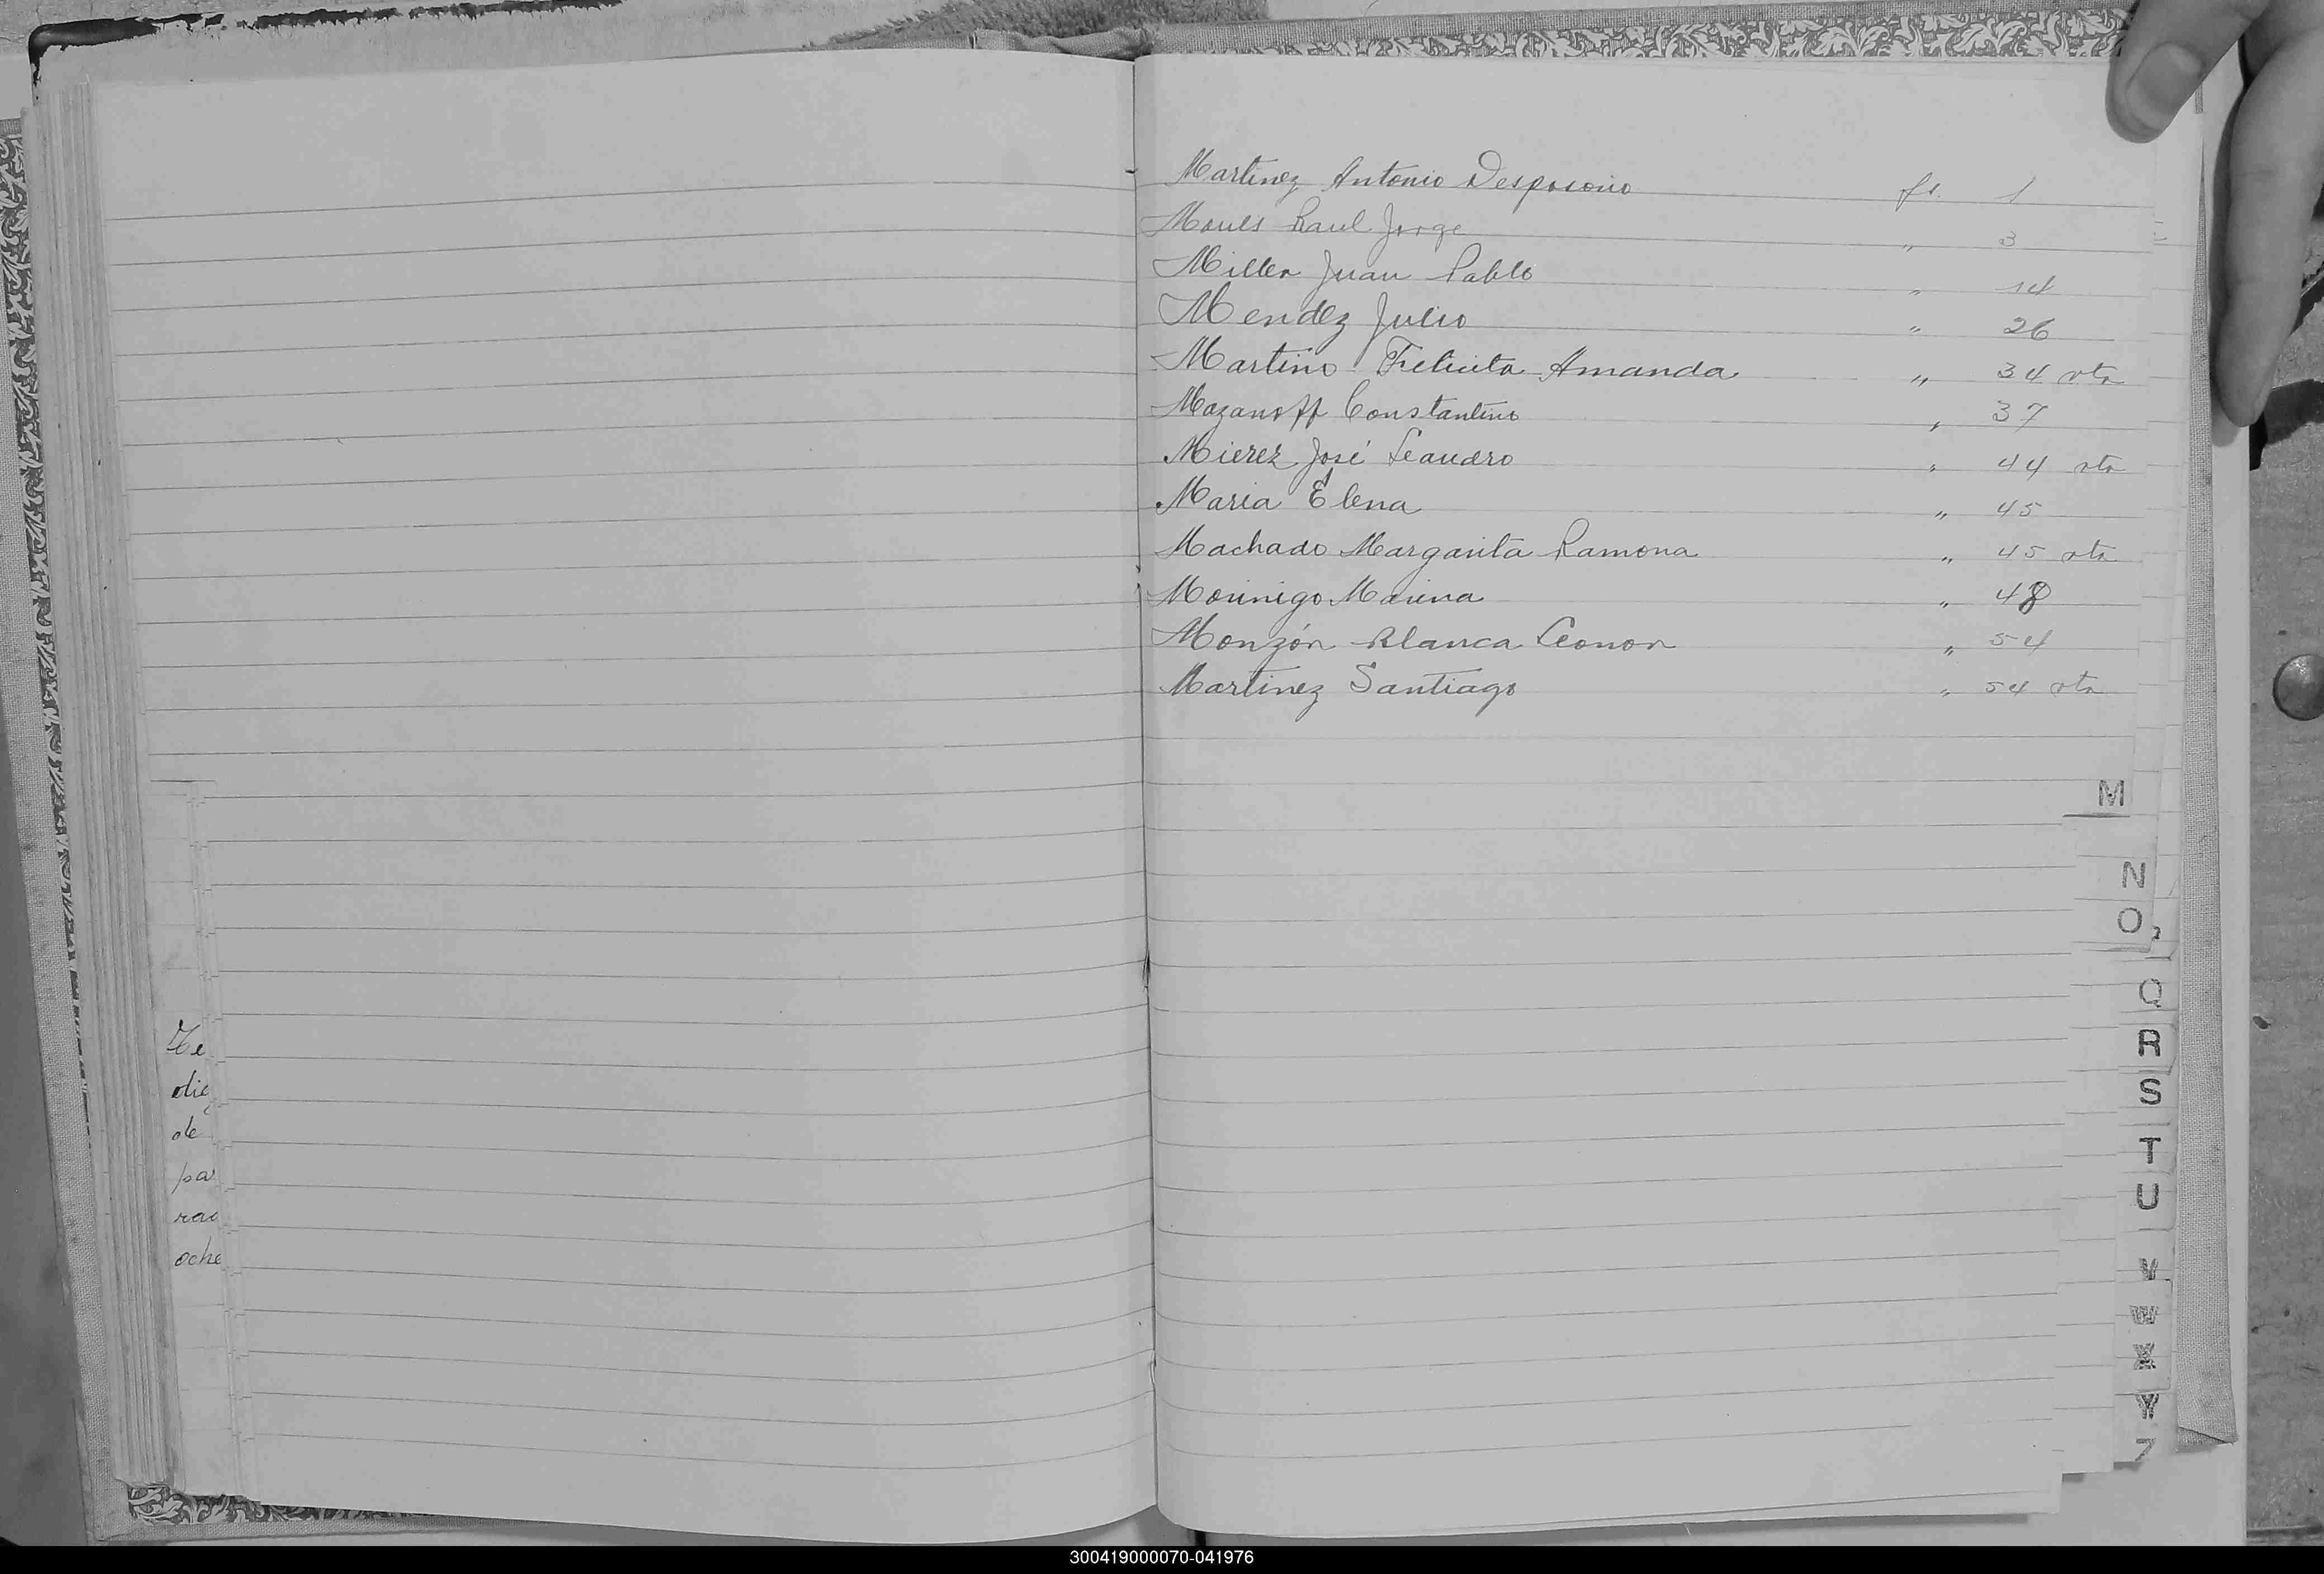 Martinez Antonio Desposorio fs. 1
Raul Jorge " 3
Miller Juan Pablo " 14
Mendez Julio " 26
Martino Felicita Amanda " 34 vta
Mazanoff Constantino " 37
Mierez José Leandro " 44 vta
Maria Elena " 45
Machado Margarita Ramona " 45 vta
Morinigo Marina " 48
Monzón Blanca Leonor " 54
Martinez Santiago " 54 vta
M
N
O
Q
R
S
T
U
V
W
X
Y
Z
de
pa
oche
300419000070-041976